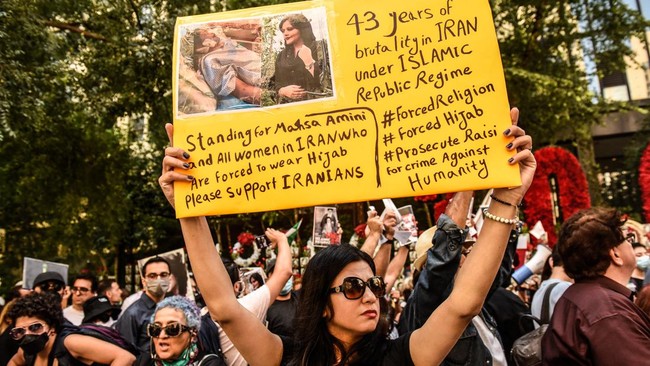 43 years of
brutality in IRAN
under ISLAMIC
Republic Regime
#Forced Religion
#Forced Hijab
#Prosecute Raisi
for crime Against
Humanity
Standing for Mahsa Amini
and All women in IRAN who
Are forced to wear Hijab
please Support IRANIANS